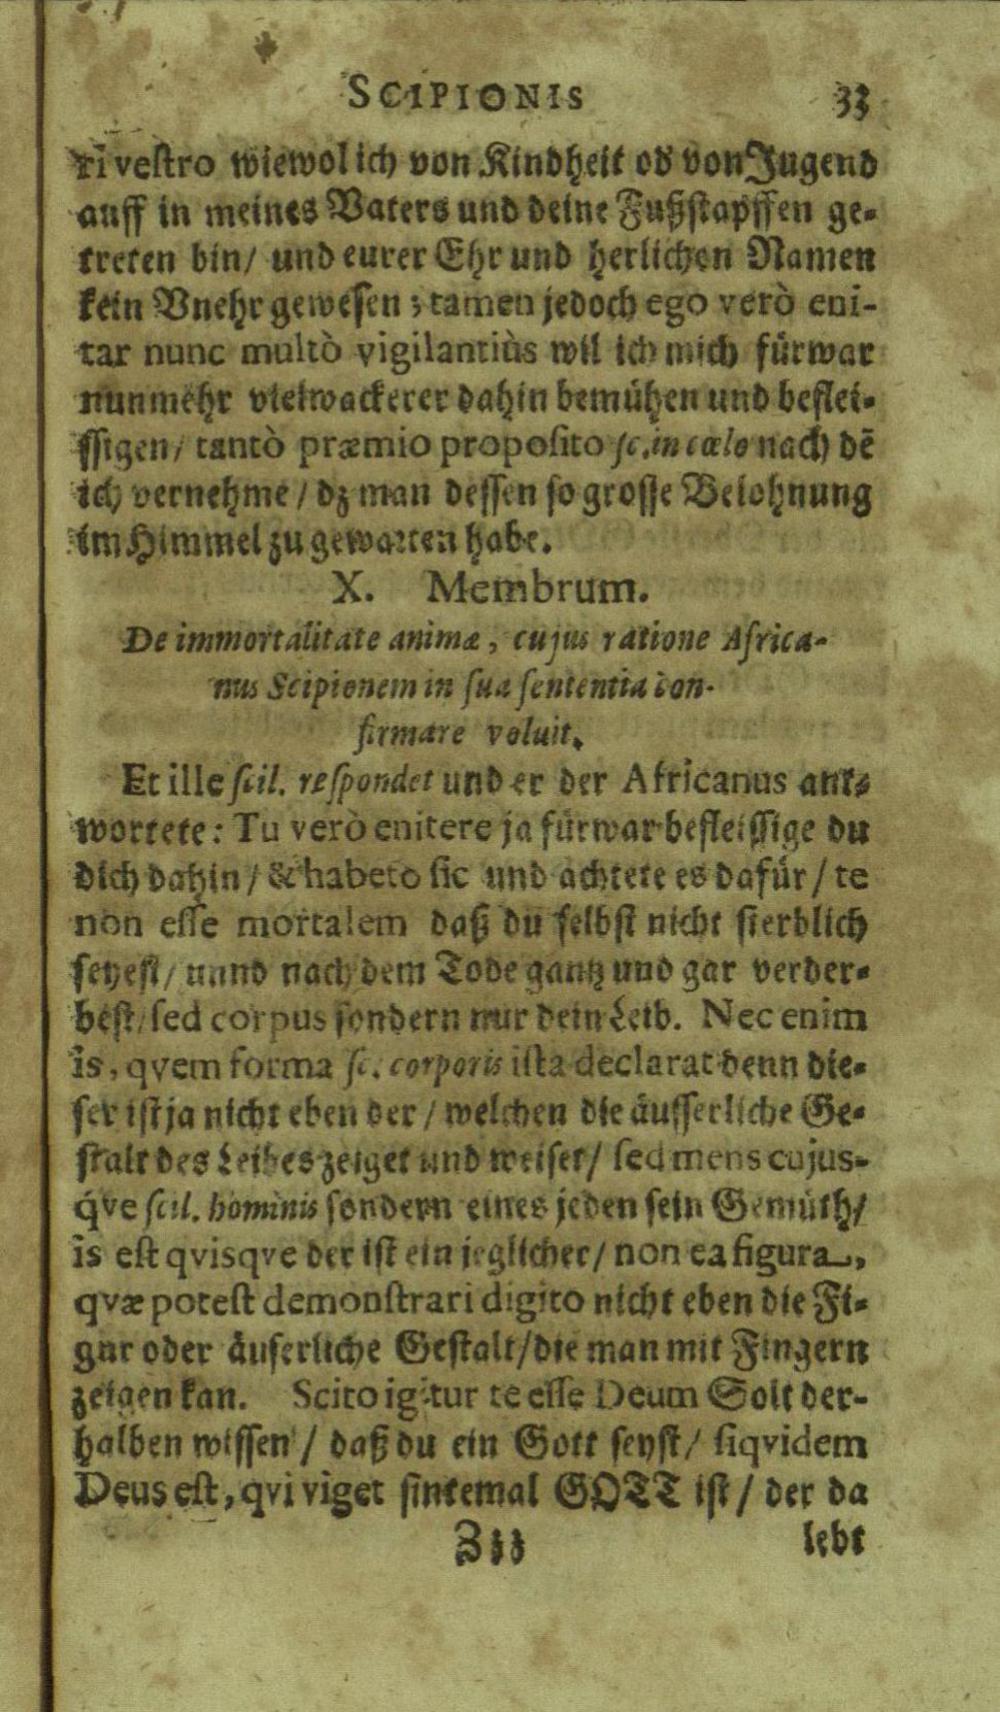 SCIPIONIS 33
ri vestro wiewol ich von Kindheit od von Jugend
auff in meines Vaters und deine Fußstapffen ge-
treten bin/ und eurer Ehr und herlichen Namen
kein Vnehr gewesen; tamen jedoch ego verò eni-
tar nunc multò vigilantiùs wil ich mich fürwar
nunmehr vielwackerer dahin bemühen und beflei-
ssigen/ tantò præmio proposito sc. in cœlo nach dē
ich vernehme/ dz man dessen so grosse Belohnung
im Himmel zu gewarten habe.
X. Membrum.
De immortalitate animæ, cujus ratione Africa-
nus Scipionem in sua sententia con-
firmare voluit.
Et ille scil. respondet und er der Africanus ant-
wortete: Tu verò enitere ja fürwar befleissige du
dich dahin/ & habeto sic und achtete es dafür/ te
non esse mortalem daß du selbst nicht sterblich
seyest/ unnd nach dem Tode gantz und gar verder-
best/ sed corpus sondern nur dein Leib. Nec enim
is, qvem forma sc. corporis ista declarat denn die-
ser ist ja nicht eben der/ welchen die äusserliche Ge-
stalt des Leibes zeiget und weiset/ sed mens cujus-
qve scil. hominis sondern eines jeden sein Gemüth/
is est qvisqve der ist ein jeglicher/ non ea figura,
qvæ potest demonstrari digito nicht eben die Fi-
gur oder äuserliche Gestalt/ die man mit Fingern
zeigen kan. Scito igitur te esse Deum Solt der-
halben wissen/ daß du ein Gott seyst/ siqvidem
Deus est, qvi viget sintemal GOTT ist/ der da
Zzz lebt